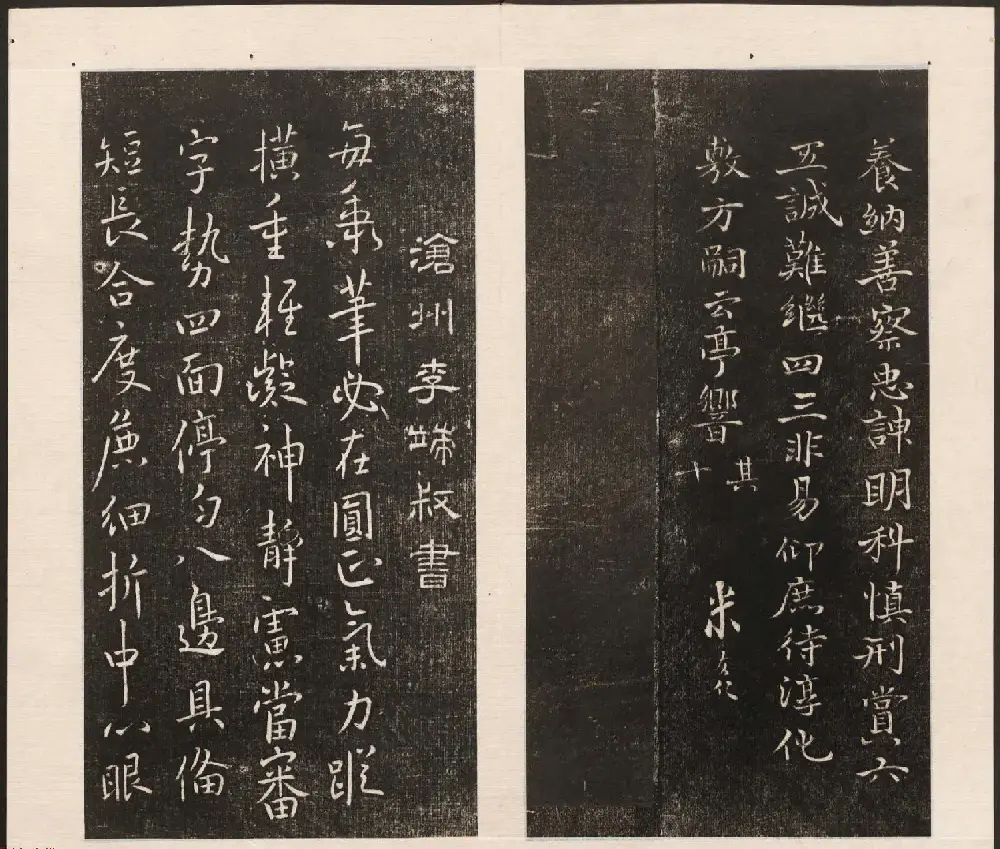 養納善察忠諫明科慎刑賞六
五誠難繼四三非易仰庶待淳化
敷方嗣云亭響
其十
米友仁
滄州李端叔書
每秉筆必在圓正氣力縱
橫重輕凝神靜慮當審
字勢四面停勻八邊具備
短長合度麁細折中心眼